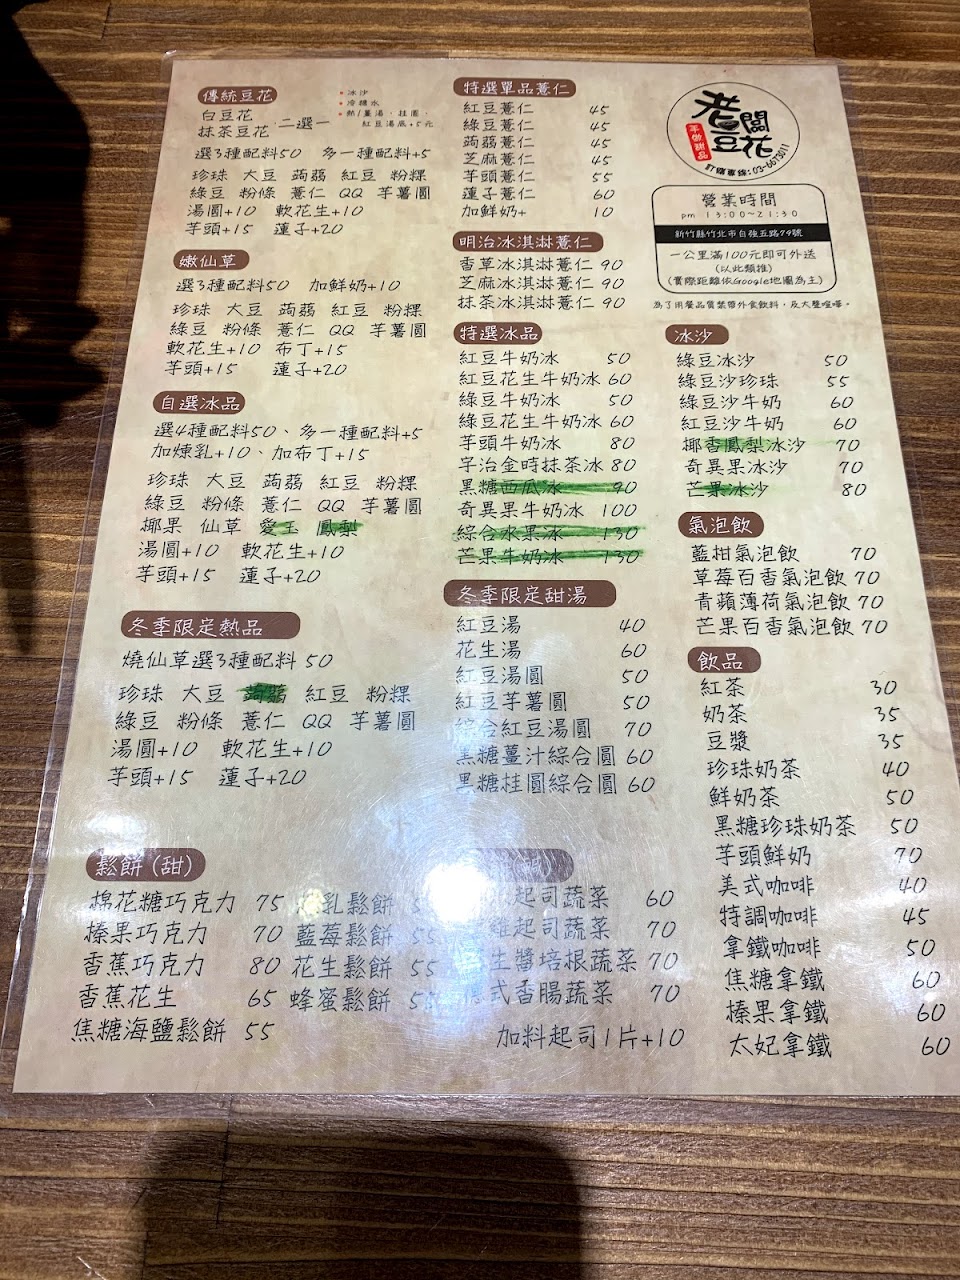 傳統豆花
白豆花
抹茶豆花
二選一
冰沙
冷糖水
熱/薑湯、桂圓、
紅豆湯底+5元
選3種配料50 多一種配料+5
珍珠 大豆 蒟蒻 紅豆 粉粿
綠豆 粉條 薏仁 QQ 芋薯圓
湯圓+10 軟花生+10
芋頭+15 蓮子+20
嫩仙草
選3種配料50 加鮮奶+10
珍珠 大豆 蒟蒻 紅豆 粉粿
綠豆 粉條 薏仁 QQ 芋薯圓
軟花生+10 布丁+15
芋頭+15 蓮子+20
自選冰品
選4種配料50、多一種配料+5
加煉乳+10、加布丁+15
珍珠 大豆 蒟蒻 紅豆 粉粿
綠豆 粉條 薏仁 QQ 芋薯圓
椰果 仙草 愛玉 鳳梨
湯圓+10 軟花生+10
芋頭+15 蓮子+20
冬季限定熱品
燒仙草選3種配料 50
珍珠 大豆 蒟蒻 紅豆 粉粿
綠豆 粉條 薏仁 QQ 芋薯圓
湯圓+10 軟花生+10
芋頭+15 蓮子+20
特選單品薏仁
紅豆薏仁 45
綠豆薏仁 45
蒟蒻薏仁 45
芝麻薏仁 45
芋頭薏仁 55
蓮子薏仁 60
加鮮奶+ 10
明治冰淇淋薏仁
香草冰淇淋薏仁 90
芝麻冰淇淋薏仁 90
抹茶冰淇淋薏仁 90
特選冰品
紅豆牛奶冰 50
紅豆花生牛奶冰 60
綠豆牛奶冰 50
綠豆花生牛奶冰 60
芋頭牛奶冰 80
字治金時抹茶冰 80
黑糖西瓜冰 90
奇異果牛奶冰 100
綜合水果冰 130
芒果牛奶冰 130
冬季限定甜湯
紅豆湯 40
花生湯 60
紅豆湯圓 50
紅豆芋薯圓 50
綜合紅豆湯圓 70
黑糖薑汁綜合圓 60
黑糖桂圓綜合圓 60
老闆豆花
手做甜品
訂購專線:03-6673011
營業時間
pm 13:00~21:30
新竹縣竹北市自強五路79號
一公里滿100元即可外送
(以此類推)
(實際距離依Google地圖為主)
為了用餐品質禁帶外食飲料,及大聲喧嘩。
冰沙
綠豆冰沙 50
綠豆沙珍珠 55
綠豆沙牛奶 60
紅豆沙牛奶 60
椰香鳳梨冰沙 70
奇異果冰沙 70
芒果冰沙 80
氣泡飲
藍柑氣泡飲 70
草莓百香氣泡飲 70
青蘋薄荷氣泡飲 70
芒果百香氣泡飲 70
飲品
紅茶 30
奶茶 35
豆漿 35
珍珠奶茶 40
鮮奶茶 50
黑糖珍珠奶茶 50
芋頭鮮奶 70
美式咖啡 40
特調咖啡 45
拿鐵咖啡 50
焦糖拿鐵 60
榛果拿鐵 60
太妃拿鐵 60
鬆餅(甜)
棉花糖巧克力 75
榛果巧克力 70
香蕉巧克力 80
香蕉花生 65
焦糖海鹽鬆餅 55
乳鬆餅
藍莓鬆餅 55
花生鬆餅 55
蜂蜜鬆餅 55
起司蔬菜 60
起司蔬菜 70
生醬培根蔬菜 70
式香腸蔬菜 70
加料起司1片+10